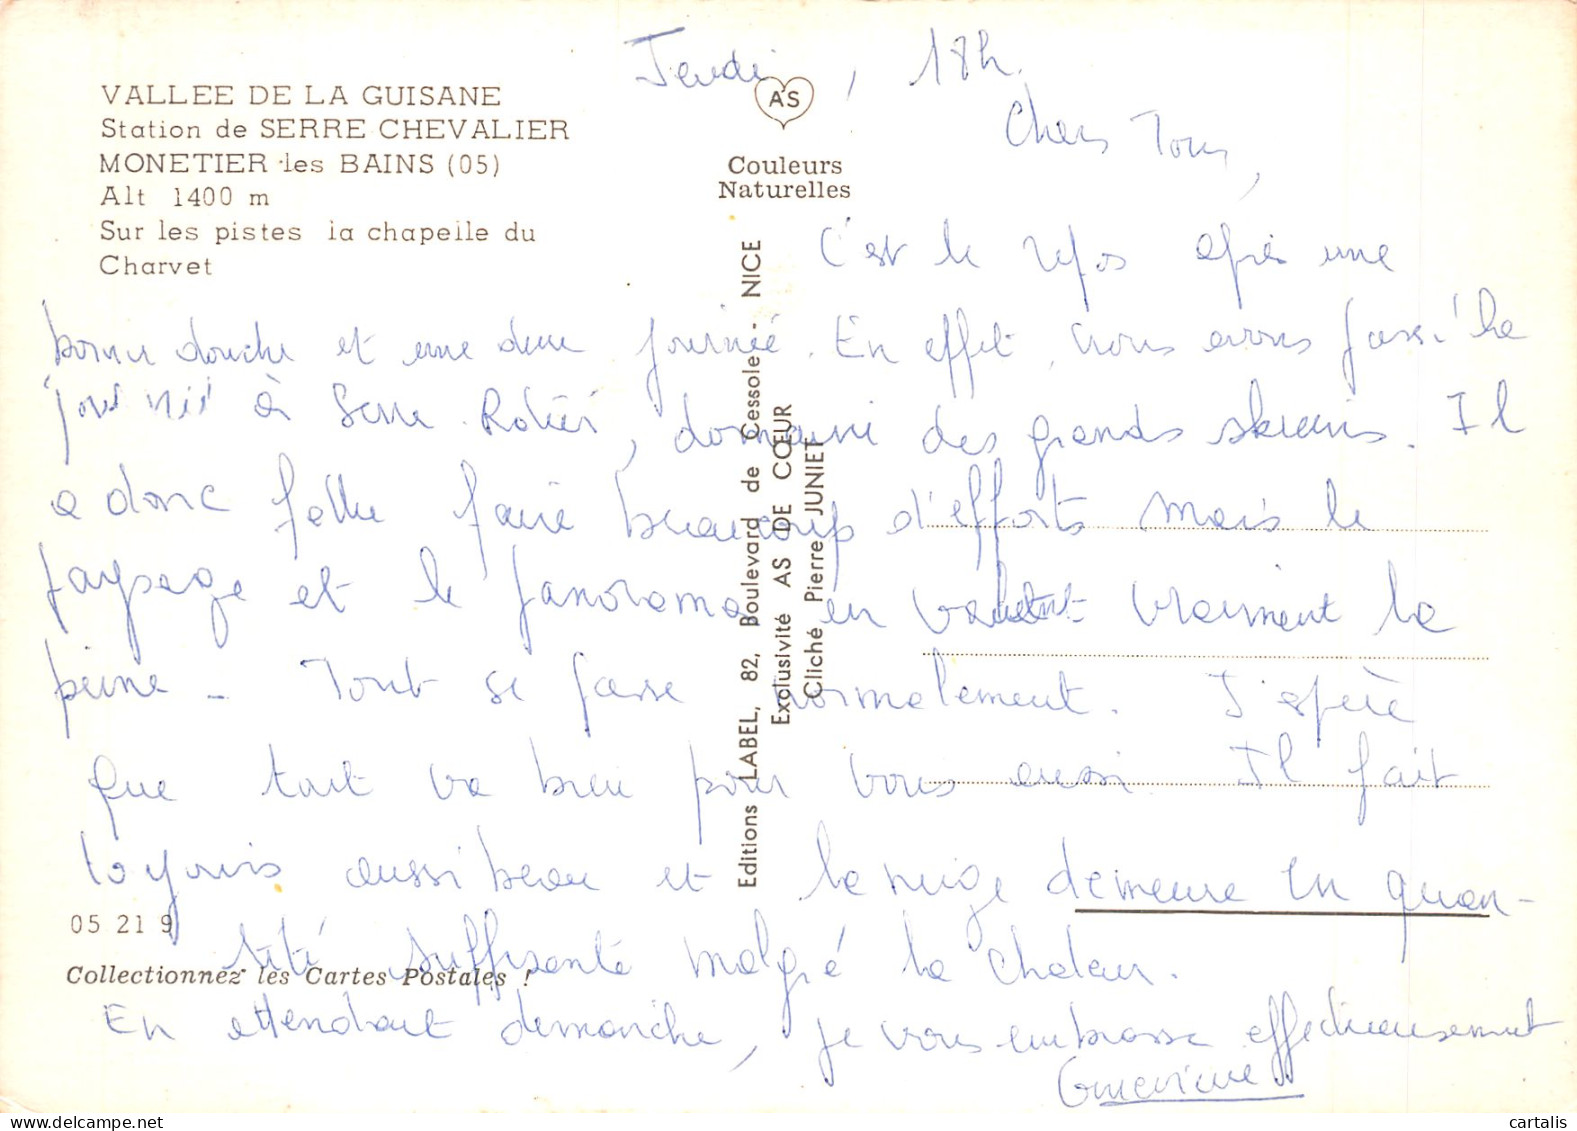 Jeudi, 18h.
VALLEE DE LA GUISANE
Station de SERRE CHEVALIER
MONETIER les BAINS (05)
Alt 1400 m
Sur les pistes la chapelle du
Charvet
AS
Couleurs
Naturelles
Editions LABEL, 82, Boulevard de Cessole - NICE
Exclusivité AS DE CŒUR
Cliché Pierre JUNIET
Chers Tous,
C'est le repos après une
bonne douche et une dure journée. En effet, nous avons passé la
journée à Serre Ratier, domaine des grands skieurs. Il
a donc fallu faire beaucoup d'efforts mais le
paysage et le panorama en valent vraiment la
peine - Tout se passe normalement. J'espère
que tout va bien pour vous aussi. Il fait
toujours aussi beau et la neige demeure en quan-
tité suffisante malgré la chaleur.
En attendant dimanche, je vous embrasse affectueusement
Geneviève
05 21 9
Collectionnez les Cartes Postales !
cartalis